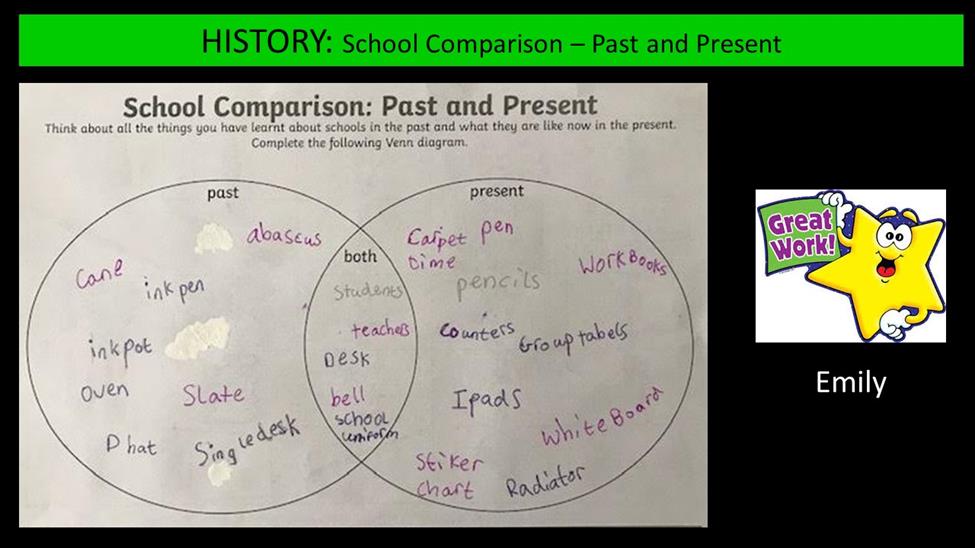 HISTORY: School Comparison – Past and Present
School Comparison: Past and Present
Think about all the things you have learnt about schools in the past and what they are like now in the present.
Complete the following Venn diagram.
past
abascus
Cane
ink pen
inkpot
oven
Slate
D hat
Single desk
both
Students
teachers
Desk
bell
school
uniform
present
Carpet
time
pen
WorkBooks
pencils
Counters
Group tabels
Ipads
WhiteBoard
Stiker
Chart
Radiator
Great
Work!
Emily